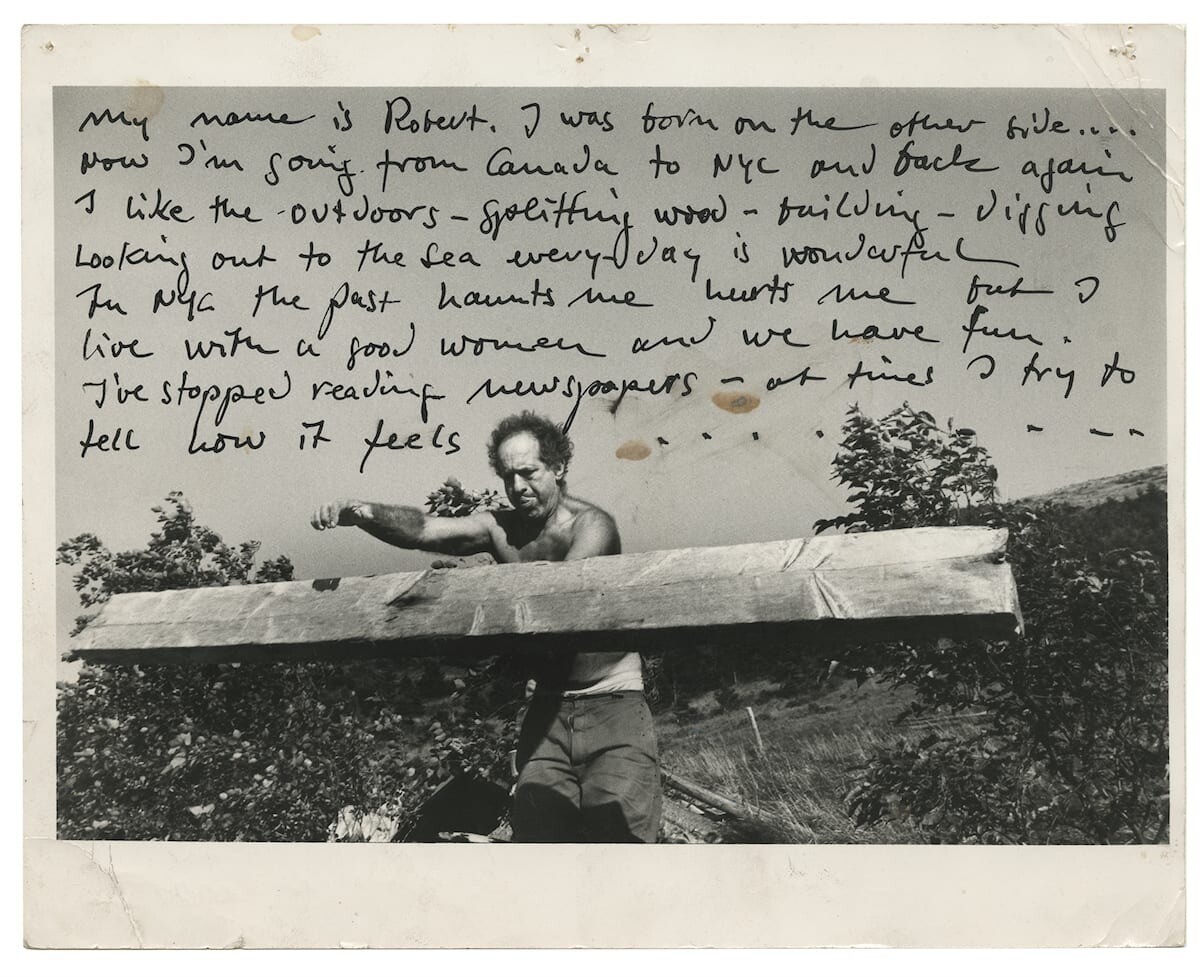 My name is Robert. I was born on the other side....
Now I'm going from Canada to NYC and back again
I like the outdoors – splitting wood – building – digging
Looking out to the sea every day is wonderful
In NYC the past haunts me hurts me but I
live with a good women and we have fun.
I've stopped reading newspapers – at times I try to
tell how it feels . . . . . - – -